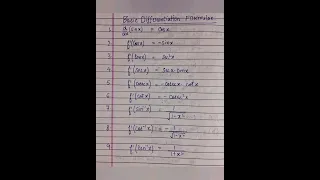 Basic Differentiation Formulas
1. d/dx (sinx) = Cosx
2 f'(cosx) = -Sinx
3 f'(tanx) = Sec²x
4 f'(Secx) = Secx.tanx
5 f'(cosecx) = -cosecx.cotx
6 f'(cotx) = -Cosec²x
7 f'(Sin⁻¹x) = 1/√1-x²
8 f'(cos⁻¹x) = -1/√1-x²
9 f'(tan⁻¹x) = 1/1+x²